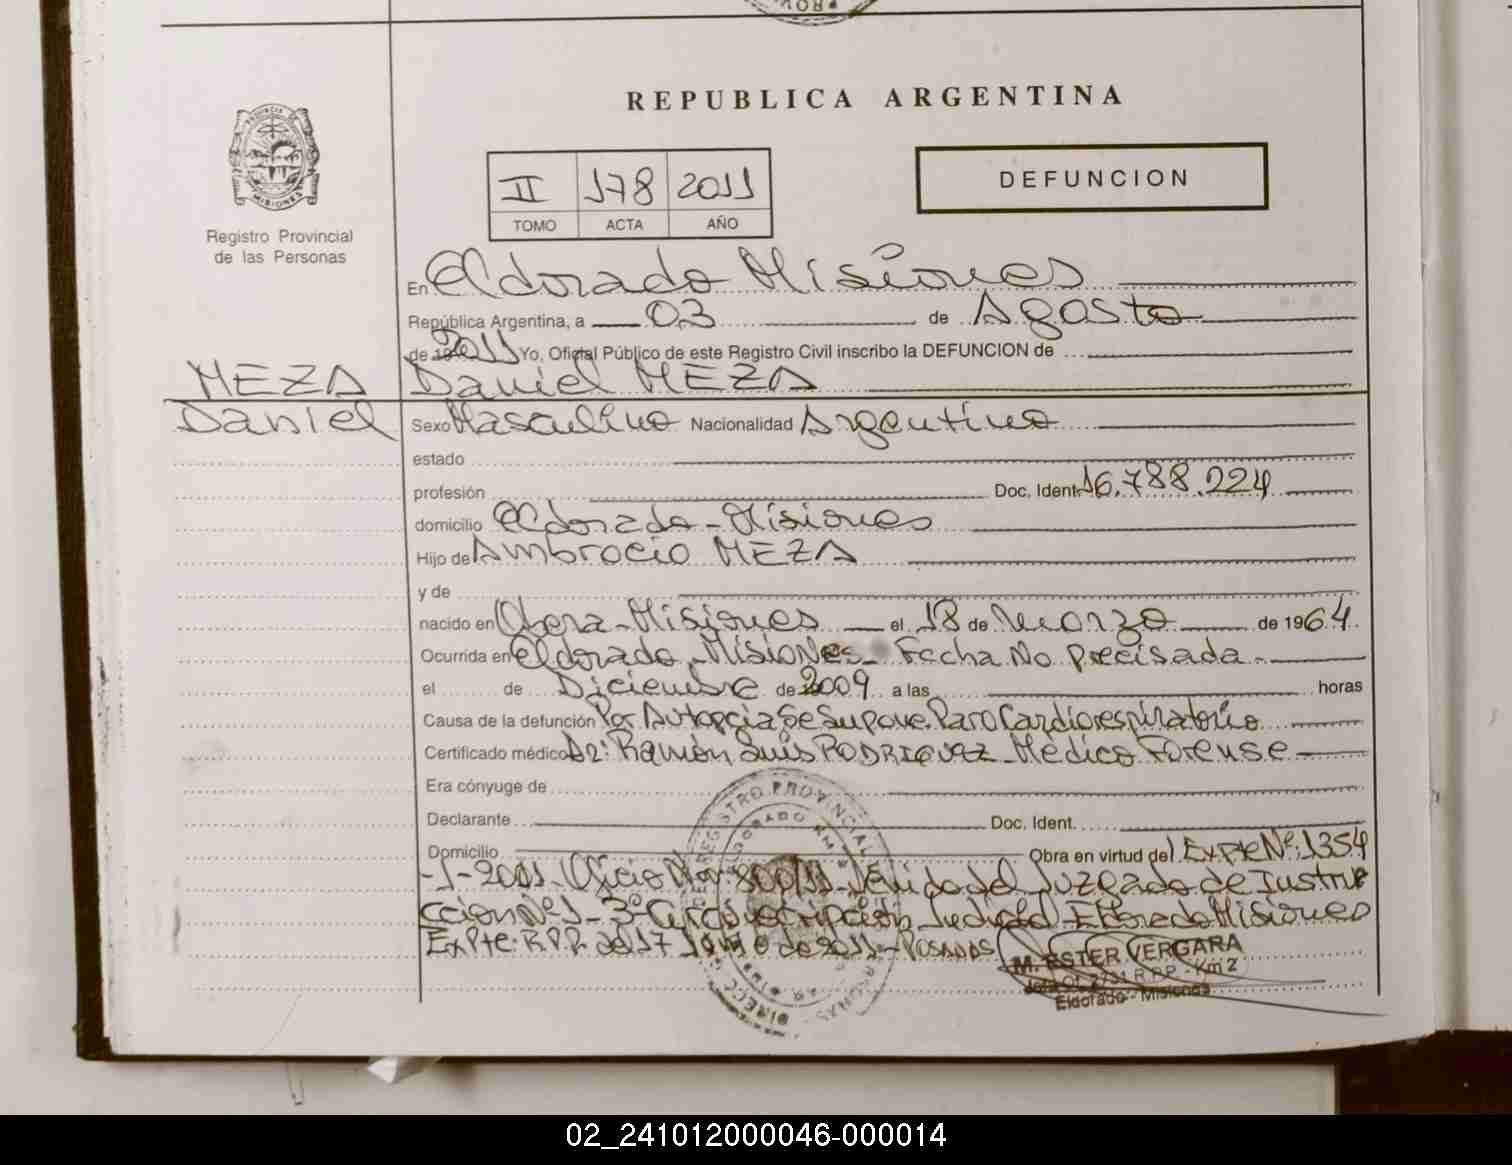 REPUBLICA ARGENTINA
II 178 2011
TOMO ACTA AÑO
DEFUNCION
PROVINCIA DE
MISIONES
Registro Provincial
de las Personas
En Eldorado Misiones
República Argentina, a 03 de Agosto
de 2011 Yo, Oficial Público de este Registro Civil inscribo la DEFUNCION de
MEZA Daniel MEZA
Daniel Sexo Masculino Nacionalidad Argentino
estado
profesión Doc. Ident. 16.788.224
domicilio Eldorado - Misiones
Hijo de Ambrocio MEZA
y de
nacido en Obera - Misiones el 18 de Marzo de 1964.
Ocurrida en Eldorado - Misiones - Fecha No Precisada -
el de Diciembre de 2009 a las horas
Causa de la defunción Por Autopcia Se Supone Paro Cardiorespiratorio
Certificado médico Dr: Ramón Luis RODRIGUEZ - Médico Forense
Era cónyuge de
Declarante Doc. Ident.
Domicilio Obra en virtud del Expte Nº: 1354
Oficio 800/11 Venido del Juzgado de Instru
cción Nº 1 - 3º Circunscripción Judicial - Eldorado Misiones
Expte. R.P.P. del 17 Junio de 2011 - POSADAS
M. ESTER VERGARA
Jefa Of. R.P.P. - Km 2
Eldorado - Misiones
REGISTRO PROVINCIAL
ELDORADO KM 2
02_241012000046-000014